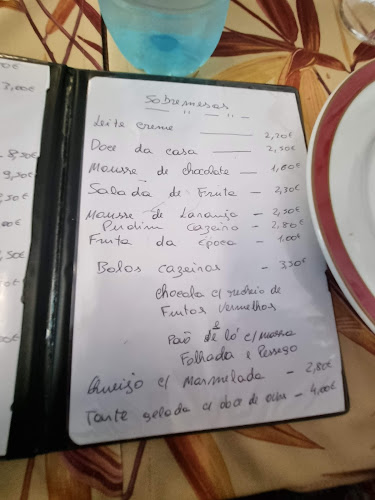 Sobremesas
Leite creme — 2,20€
Doce da casa — 2,50€
Mousse de chocolate — 1,80€
Salada de Fruta — 2,30€
Mousse de Laranja — 2,50€
Pudim cazeiro — 2,80€
Fruta da época — 1,00€
Bolos cazeiros — 3,50€
chocola c/ recheio de
Frutos Vermelhos
e
Pão de ló c/ massa
Folhada e Pessego
Queijo c/ Marmelada — 2,80€
Tarte gelada c/ doce de ovos — 4,00€
3,00€
8,50€
9,50€